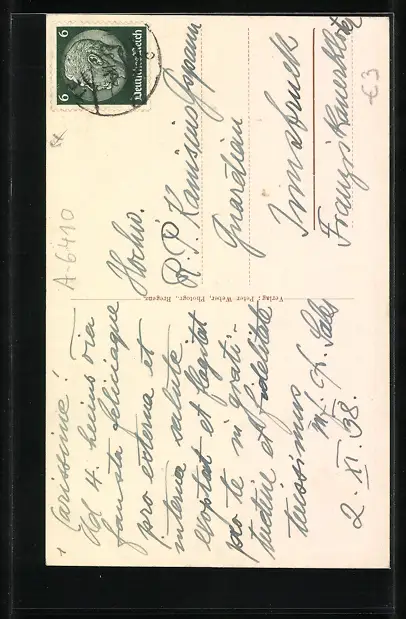 Carissime!
Ad 4. huius dia
fausta feliciaque
pro externa et
interna salute
exoptat et flagitat
pro te in grati-
tudine et fidelitate
tuissimus
2. XI. 38.
Verlag: Peter Weber, Photogr., Bregenz.
A-6410
Hochw.
R. P.
Guardian
Innsbruck
Franziskanerkloster
€3
6
6
Deutsches Reich